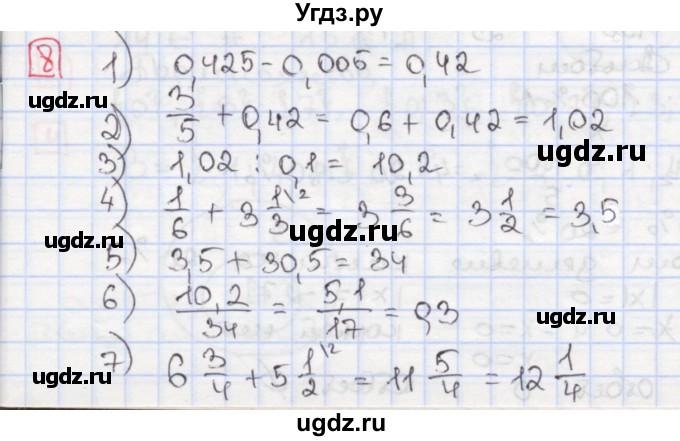 Угдз.ру
8 1) 0,425 - 0,005 = 0,42
2) 3/5 + 0,42 = 0,6 + 0,42 = 1,02
3) 1,02 : 0,1 = 10,2
4) 1/6 + 3 1/3\2 = 3 3/6 = 3 1/2 = 3,5
5) 3,5 + 30,5 = 34
6) 10,2/34 = 5,1/17 = 0,3
7) 6 3/4 + 5 1/2\2 = 11 5/4 = 12 1/4
ugdz.ru
ugdz.ru
ugdz.ru
ugdz.ru
ugdz.ru
ugdz.ru
ugdz.ru
ugdz.ru
ugdz.ru
ugdz.ru
ugdz.ru